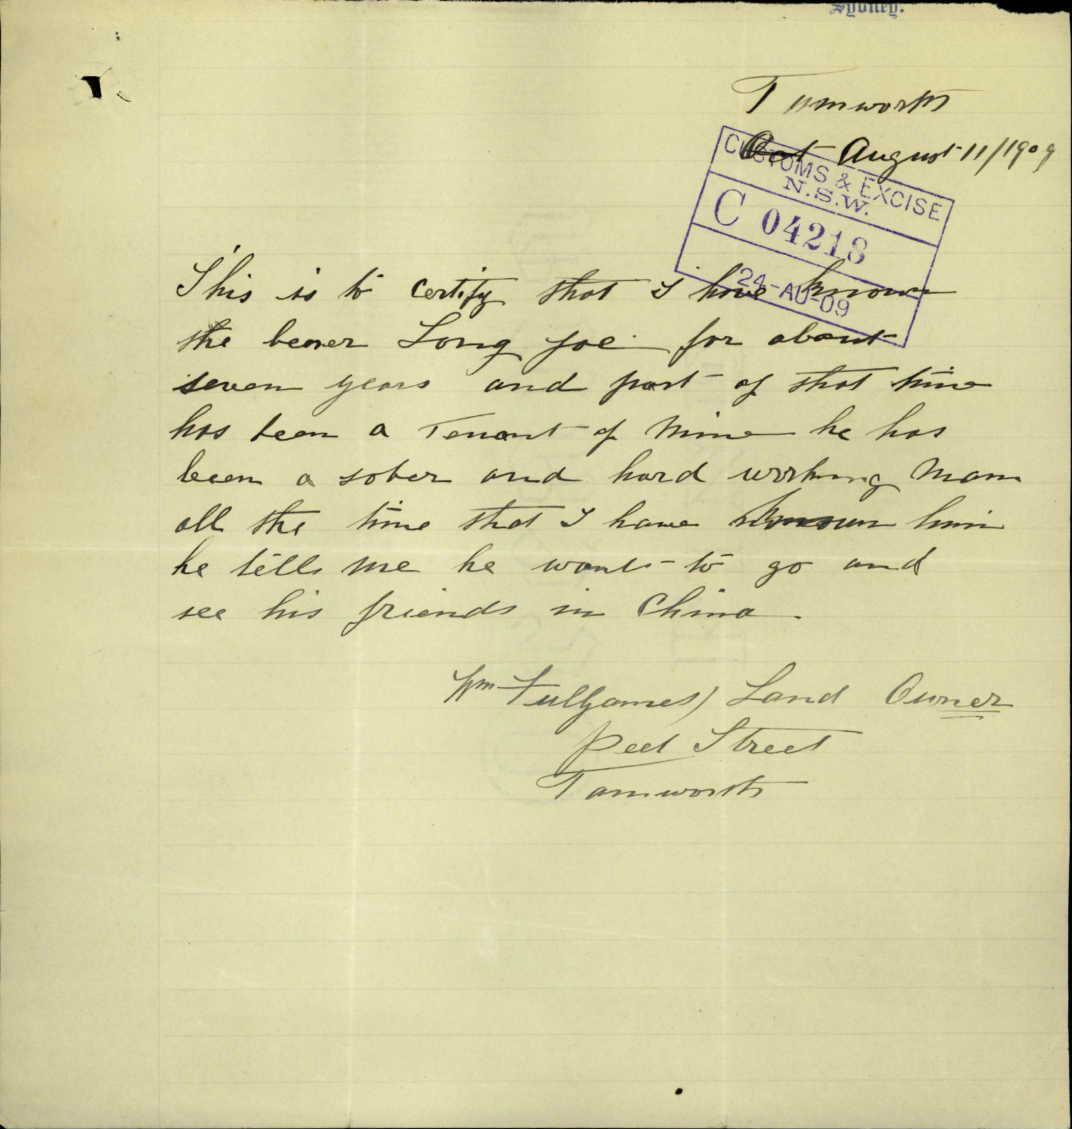 Sydney.
Tamworth
Oct August 11/1909
CUSTOMS & EXCISE
N.S.W.
C 04218
24-AU-09
This is to certify that I have known
the bearer Long Joe for about
seven years and part of that time
has been a Tenant of Mine he has
been a sober and hard working Man
all the time that I have known him
he tells me he wants to go and
see his friends in China.
Wm Fulljames) Land Owner
Peel Street
Tamworth